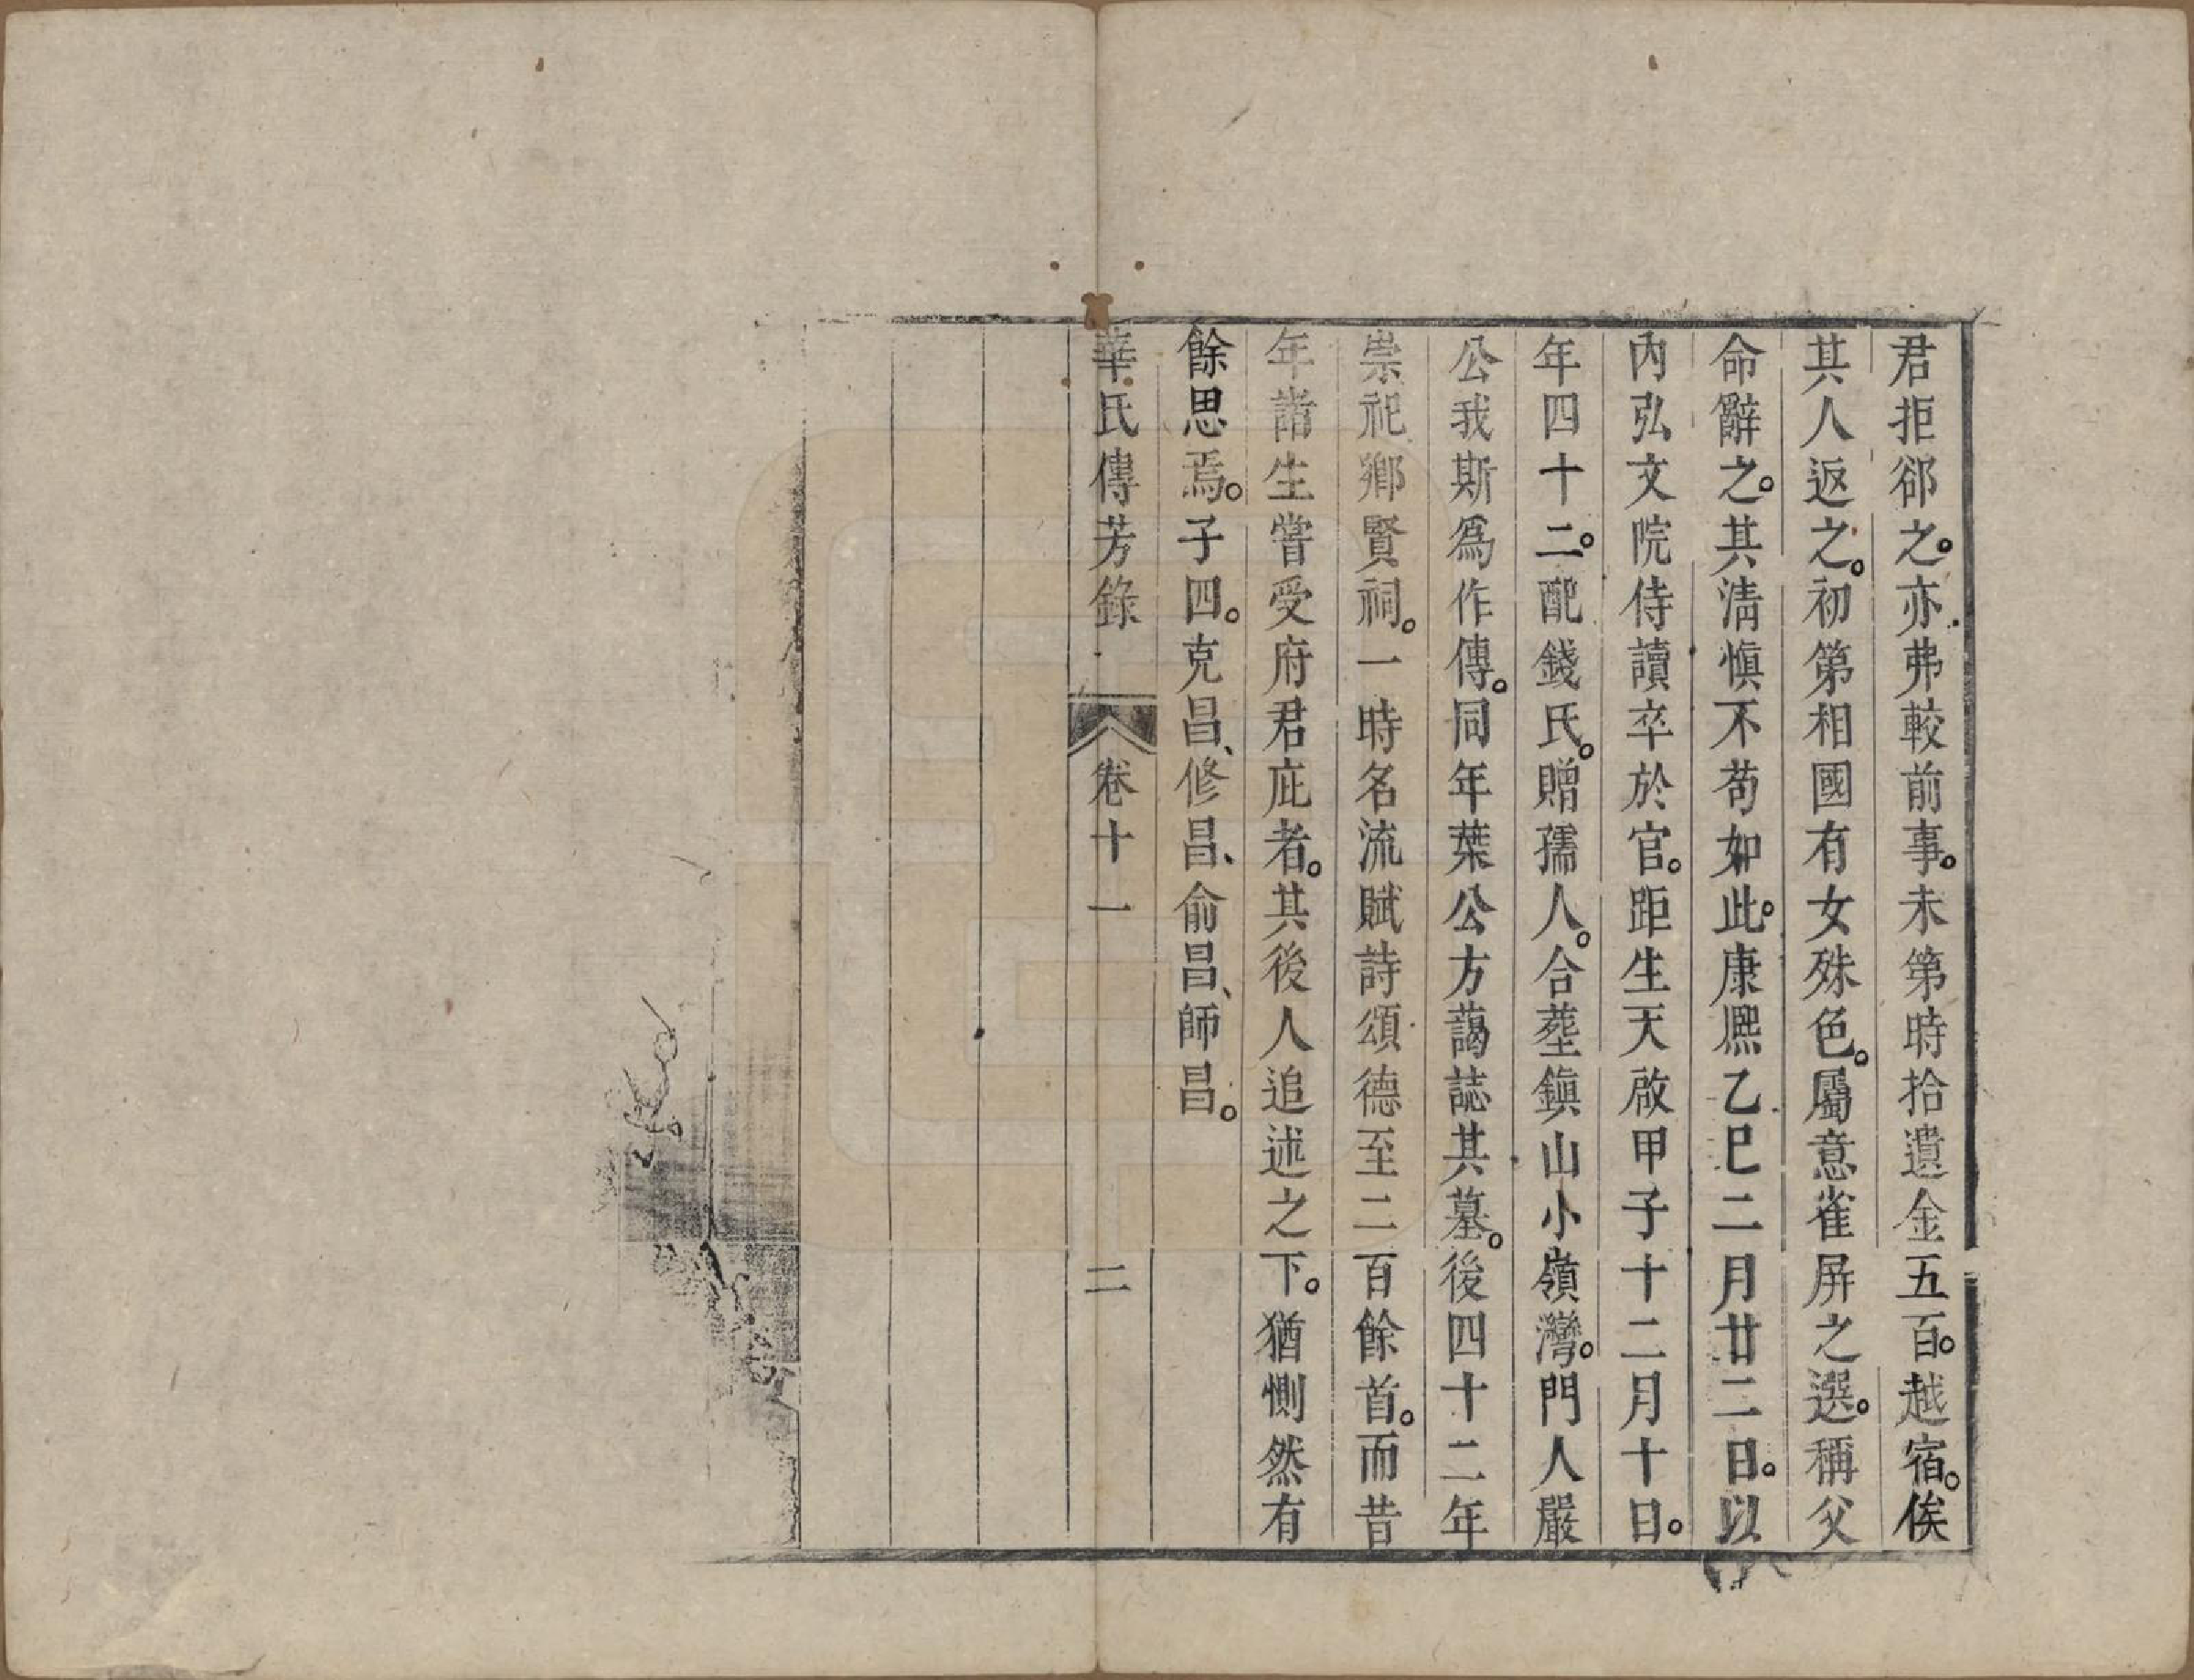 君拒郤之。亦弗較前事。未第時拾遺金五百。越宿。俟
其人返之。初第相國有女殊色。屬意雀屏之選。稱父
命辭之。其清慎不苟如此。康熈乙巳二月廿二日。以
內弘文院侍讀卒於官。距生天啟甲子十二月十日。
年四十二。配錢氏。贈孺人。合塟鎮山小嶺灣。門人嚴
公我斯爲作傳。同年葉公方藹誌其墓。後四十二年
崇祀鄉賢祠。一時名流賦詩頌德至二百餘首。而昔
年諸生嘗受府君庇者。其後人追述之下。猶惻然有
餘思焉。子四。克昌、修昌、俞昌、師昌。
華氏傳芳錄 卷十一 二